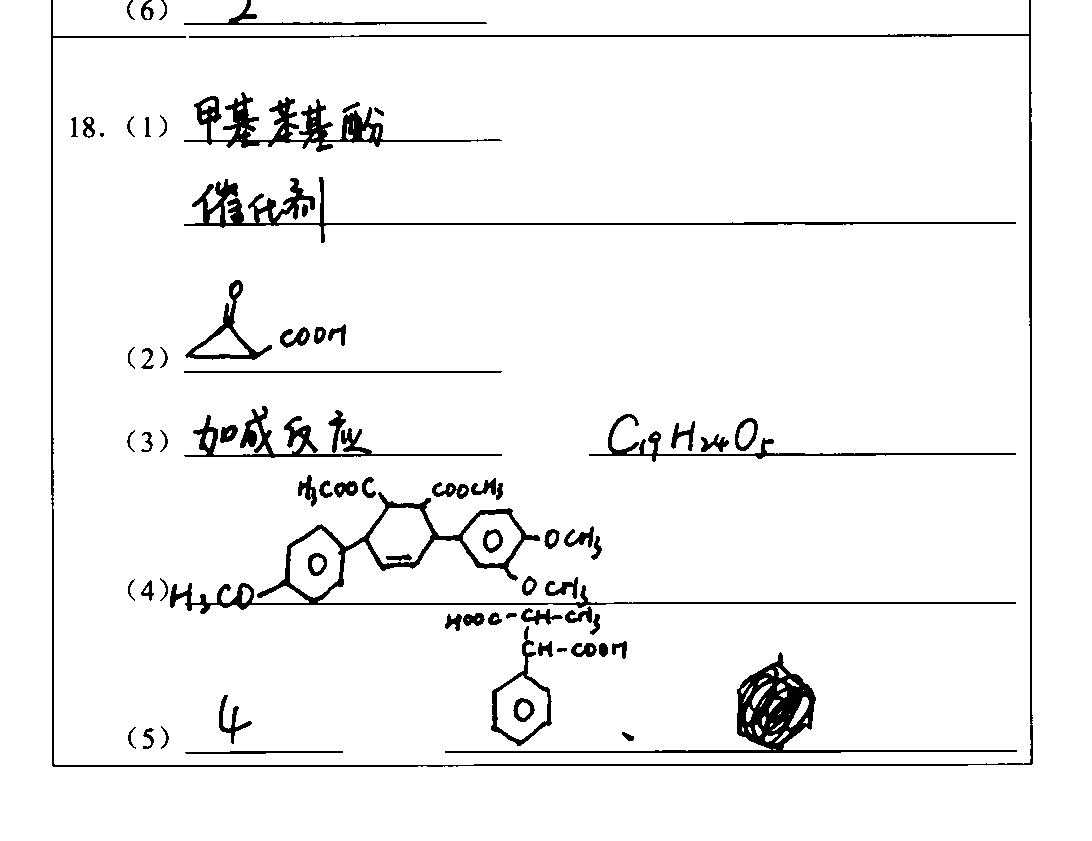 (6) 2
18. (1) 甲基苯基酚
催化剂
O
COOH
(2)
(3) 加成反应 C19H24O5
H3COOC COOCH3
OCH3
(4) H3CO OCH3
HOOC-CH-CH3
CH-COOH
(5) 4 、